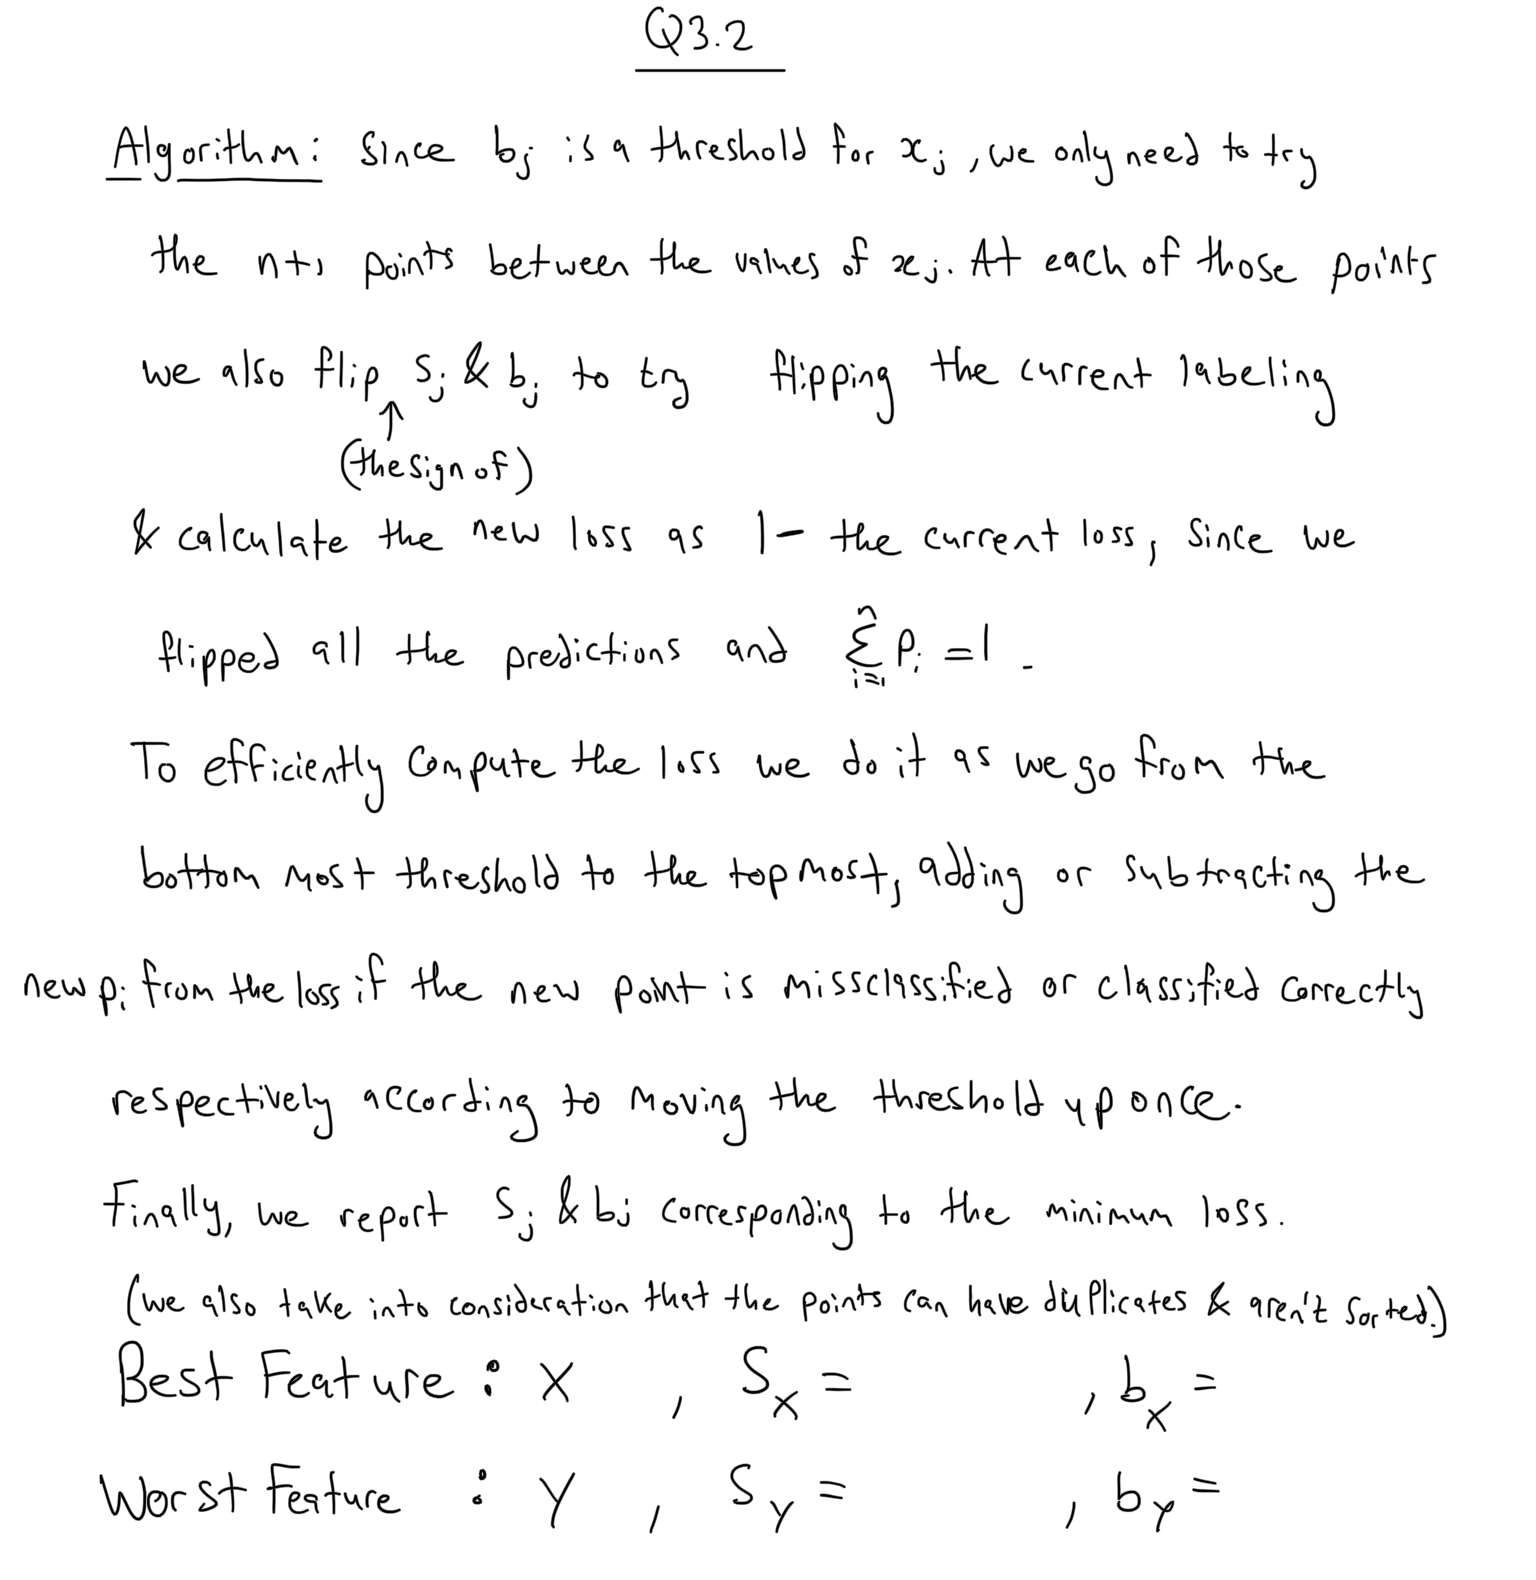 Q3.2
Algorithm: Since bj is a threshold for xj, we only need to try
the n+1 points between the values of xj. At each of those points
we also flip Sj & bj to try flipping the current labeling
↑
(the sign of)
& calculate the new loss as 1- the current loss, since we
flipped all the predictions and Σ_{i=1}^{n} Pi = 1.
To efficiently compute the loss we do it as we go from the
bottom most threshold to the topmost, adding or subtracting the
new pi from the loss if the new point is missclassified or classified correctly
respectively according to moving the threshold up once.
Finally, we report Sj & bj corresponding to the minimum loss.
(we also take into consideration that the points can have duplicates & aren't sorted.)
Best Feature : X , Sx = , bx =
Worst Feature : Y , Sy = , by =